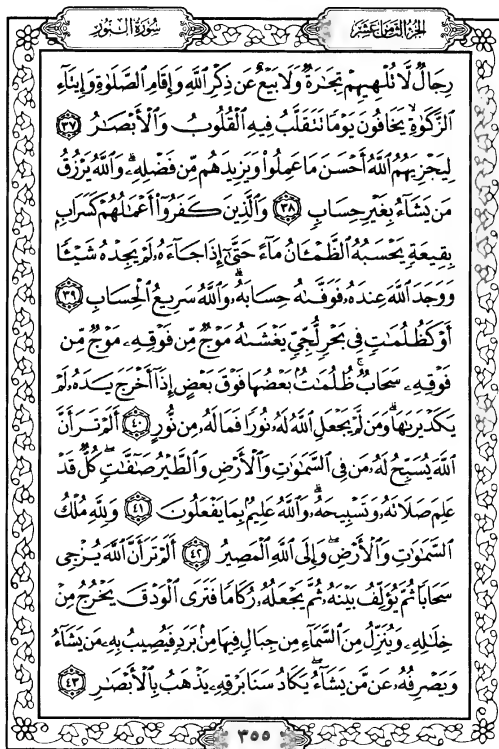 سُورَةُ النُّورِ
الجُزْءُ الثَّامِنَ عَشَرَ
رِجَالٌ لَّا تُلْهِيهِمْ تِجَارَةٌ وَلَا بَيْعٌ عَن ذِكْرِ اللَّهِ وَإِقَامِ الصَّلَوٰةِ وَإِيتَآءِ
الزَّكَوٰةِ يَخَافُونَ يَوْمًا تَتَقَلَّبُ فِيهِ الْقُلُوبُ وَالْأَبْصَارُ ٣٧
لِيَجْزِيَهُمُ اللَّهُ أَحْسَنَ مَا عَمِلُوا۟ وَيَزِيدَهُم مِّن فَضْلِهِۦ وَاللَّهُ يَرْزُقُ
مَن يَشَآءُ بِغَيْرِ حِسَابٍ ٣٨ وَالَّذِينَ كَفَرُوٓا۟ أَعْمَٰلُهُمْ كَسَرَابٍ
بِقِيعَةٍ يَحْسَبُهُ الظَّمْـَٔانُ مَآءً حَتَّىٰٓ إِذَا جَآءَهُۥ لَمْ يَجِدْهُ شَيْـًٔا
وَوَجَدَ اللَّهَ عِندَهُۥ فَوَفَّىٰهُ حِسَابَهُۥ وَاللَّهُ سَرِيعُ الْحِسَابِ ٣٩
أَوْ كَظُلُمَٰتٍ فِى بَحْرٍ لُّجِّىٍّ يَغْشَىٰهُ مَوْجٌ مِّن فَوْقِهِۦ مَوْجٌ مِّن
فَوْقِهِۦ سَحَابٌ ظُلُمَٰتٌۢ بَعْضُهَا فَوْقَ بَعْضٍ إِذَآ أَخْرَجَ يَدَهُۥ لَمْ
يَكَدْ يَرَىٰهَا وَمَن لَّمْ يَجْعَلِ اللَّهُ لَهُۥ نُورًا فَمَا لَهُۥ مِن نُّورٍ ٤٠ أَلَمْ تَرَ أَنَّ
اللَّهَ يُسَبِّحُ لَهُۥ مَن فِى السَّمَٰوَٰتِ وَالْأَرْضِ وَالطَّيْرُ صَٰٓفَّٰتٍ كُلٌّ قَدْ
عَلِمَ صَلَاتَهُۥ وَتَسْبِيحَهُۥ وَاللَّهُ عَلِيمٌۢ بِمَا يَفْعَلُونَ ٤١ وَلِلَّهِ مُلْكُ
السَّمَٰوَٰتِ وَالْأَرْضِ وَإِلَى اللَّهِ الْمَصِيرُ ٤٢ أَلَمْ تَرَ أَنَّ اللَّهَ يُزْجِى
سَحَابًا ثُمَّ يُؤَلِّفُ بَيْنَهُۥ ثُمَّ يَجْعَلُهُۥ رُكَامًا فَتَرَى الْوَدْقَ يَخْرُجُ مِنْ
خِلَٰلِهِۦ وَيُنَزِّلُ مِنَ السَّمَآءِ مِن جِبَالٍ فِيهَا مِنۢ بَرَدٍ فَيُصِيبُ بِهِۦ مَن يَشَآءُ
وَيَصْرِفُهُۥ عَن مَّن يَشَآءُ يَكَادُ سَنَا بَرْقِهِۦ يَذْهَبُ بِالْأَبْصَٰرِ ٤٣
٣٥٥